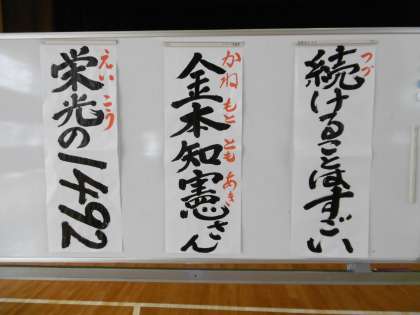 続けることはすごい
つづ
金本知憲さん
かね もと とも あき
栄光の1492
えい こう